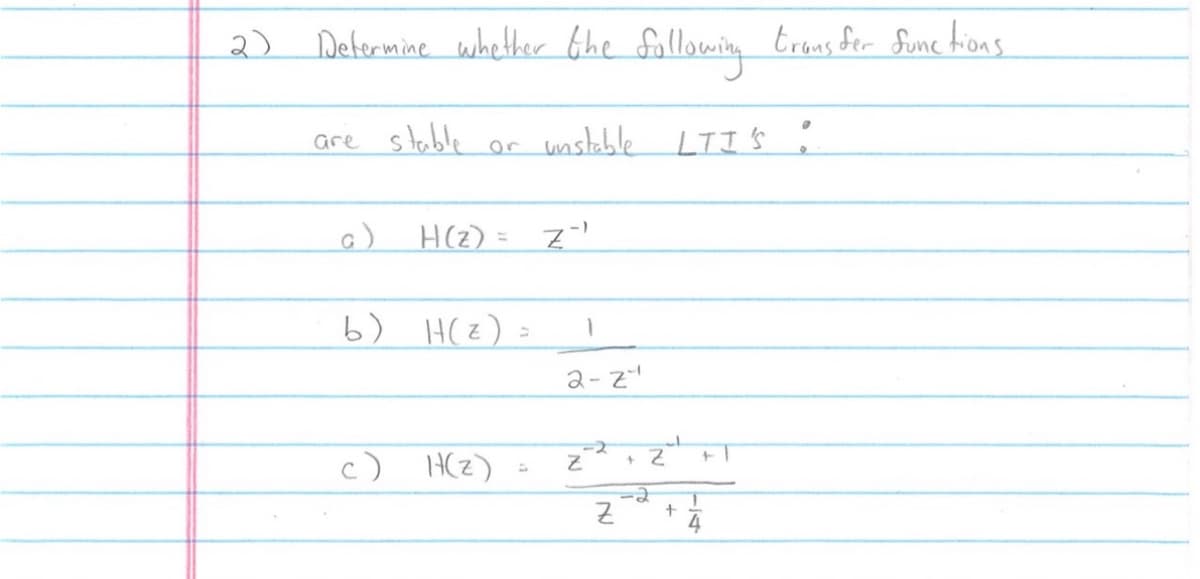 2) Determine whether the following transfer functions
are stable or unstable LTI's :
a) H(z) = z⁻¹
b) H(z) = 1
2 - z⁻¹
c) H(z) = z⁻² + z⁻¹ + 1
z⁻² + 1/4